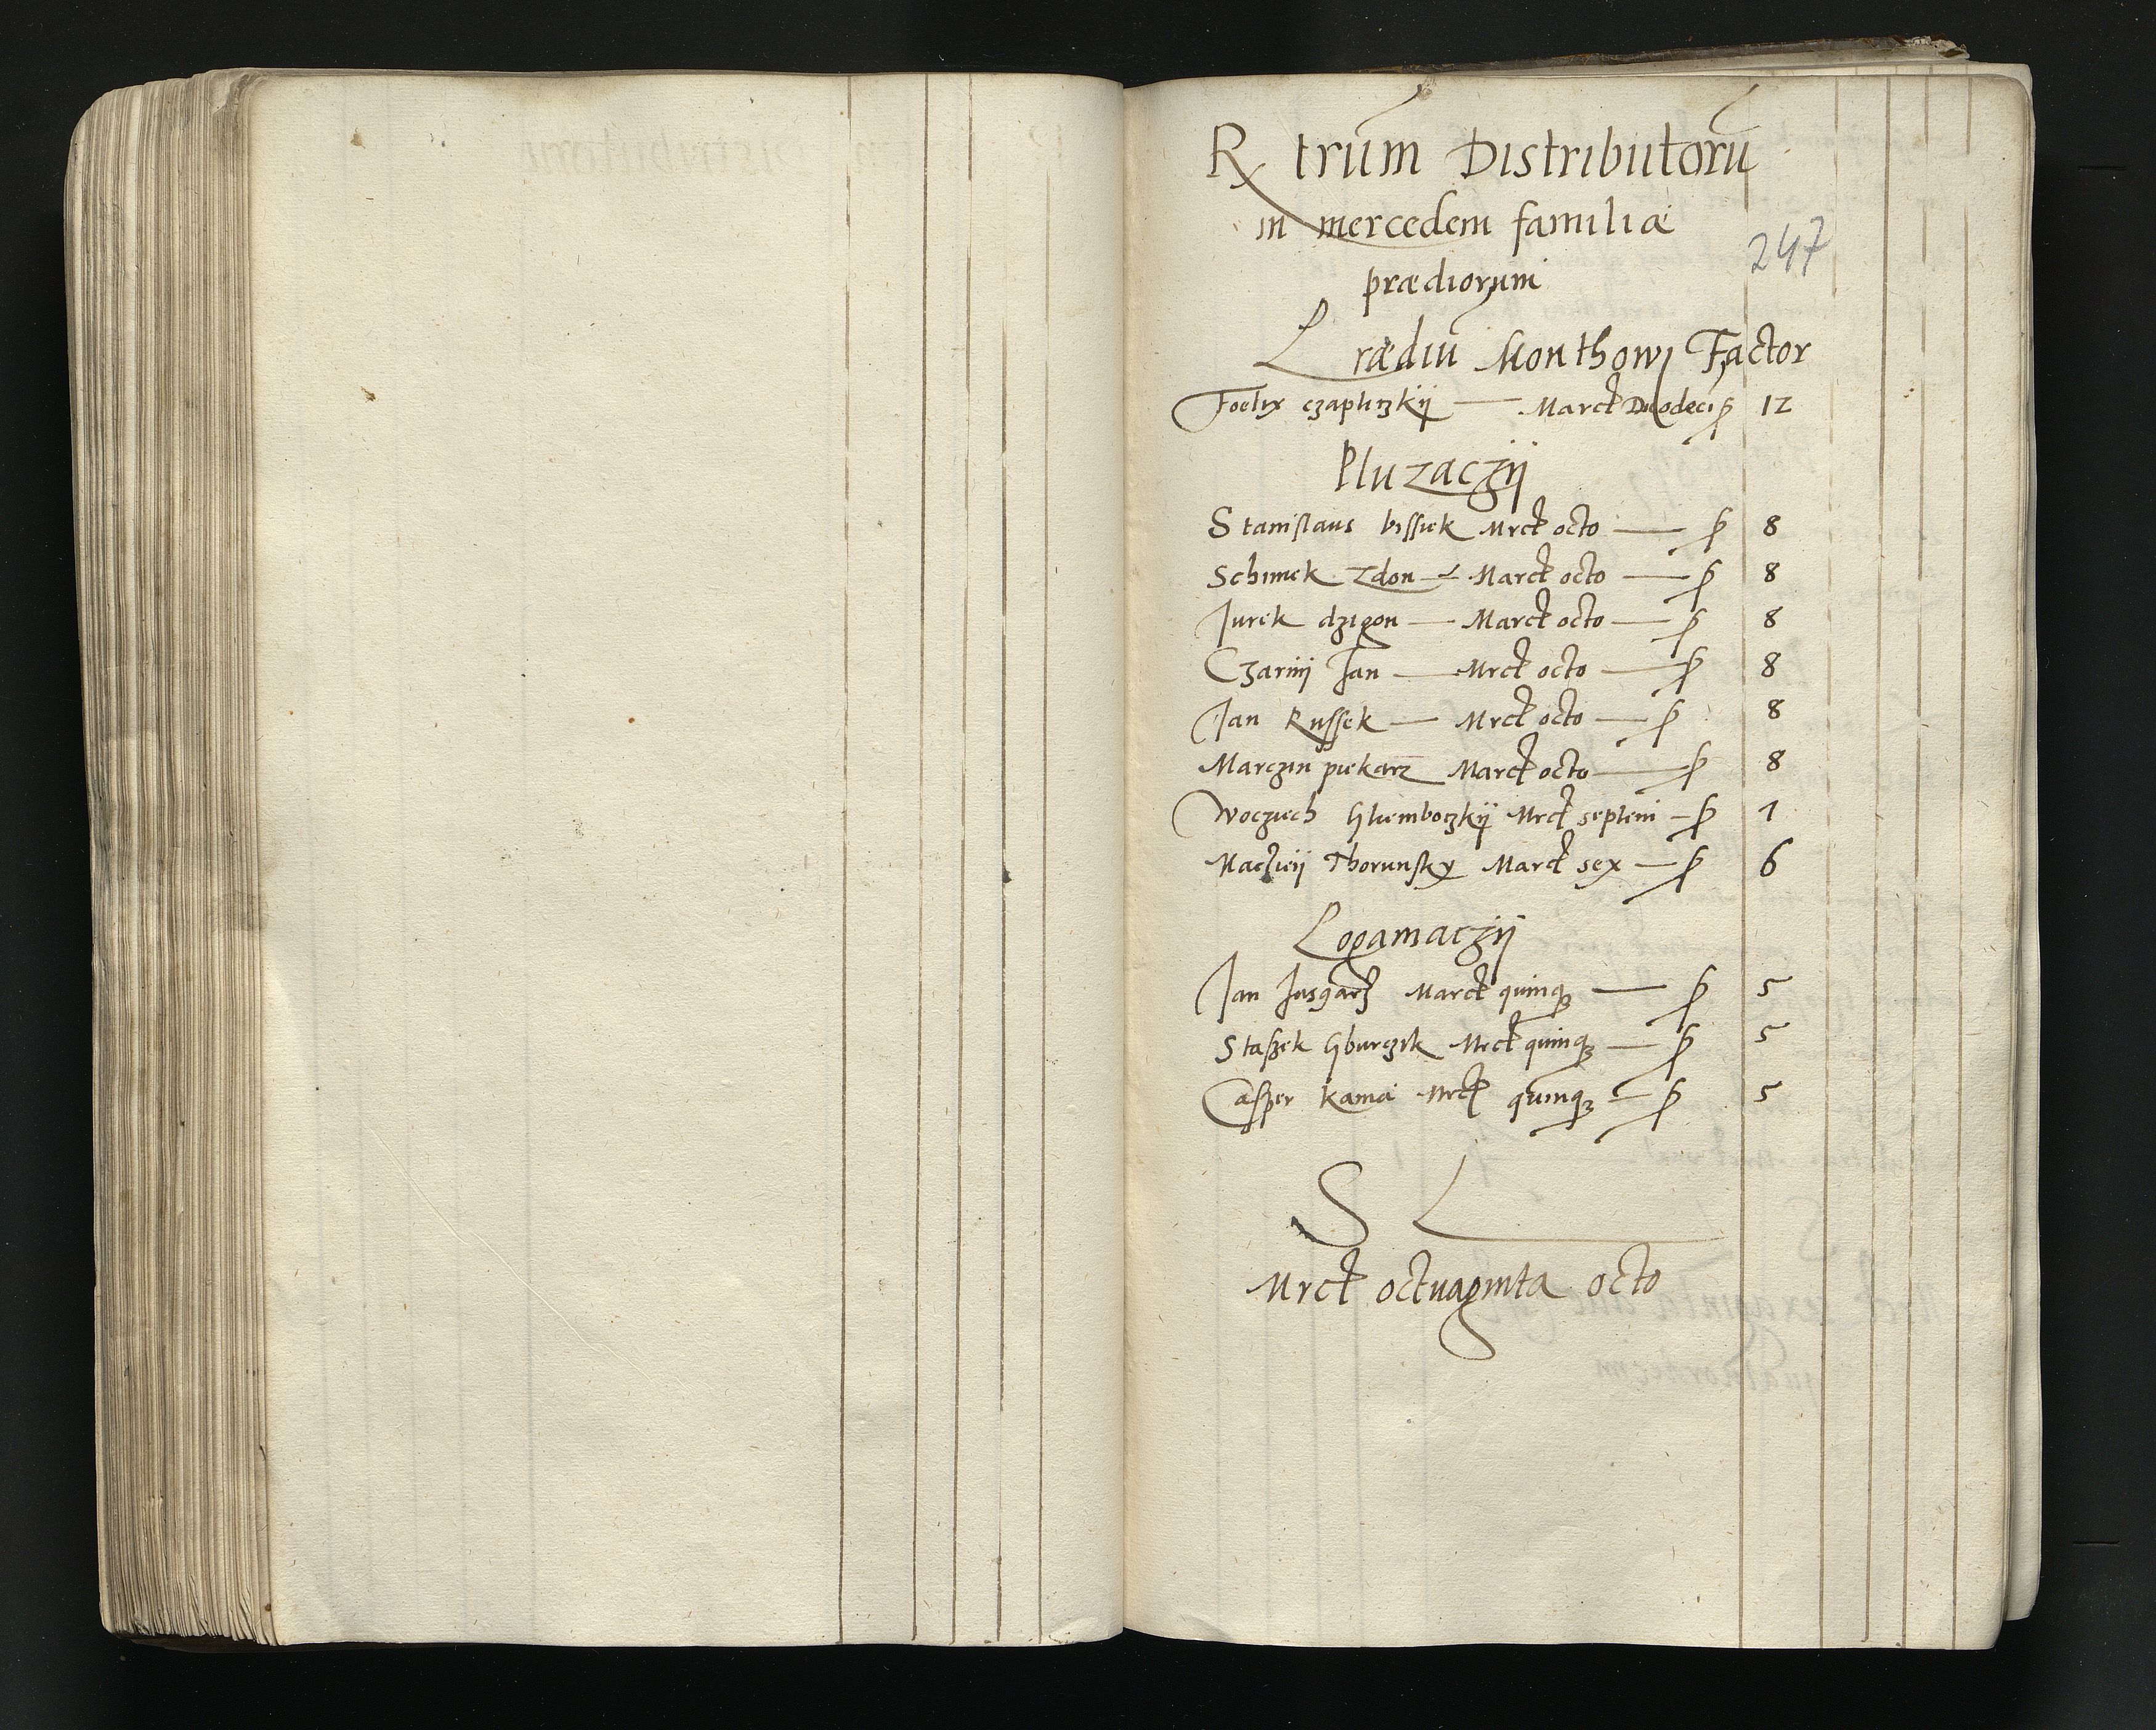 Rx trum Distributorū
in mercedem familiæ
247
prædiorum
Prædiū Monthowj Factor
Foelix czapliczkÿ — Marct Duodecī ꝑ 12
Pluzaczÿ
Stanislaus bissiek Mrct octo — ꝑ 8
Schimek Zdon — Marct octo — ꝑ 8
Jurek dzigon — Marct octo — ꝑ 8
Czarnÿ Jan — Mrct octo — ꝑ 8
Jan Russek — Mrct octo — ꝑ 8
Marczin piekarz Marct octo — ꝑ 8
Wocziech Gliemboczkÿ Mrct septem — ꝑ 7
Maczieÿ Thorunsky Marct sex — ꝑ 6
Pogamaczÿ
Jan Jusgarz Marct quinqꝫ — ꝑ 5
Staszek Gburczik Mrct quinqꝫ — ꝑ 5
Casper kama Mrct quinqꝫ — ꝑ 5
S L
Mrct octuaginta octo